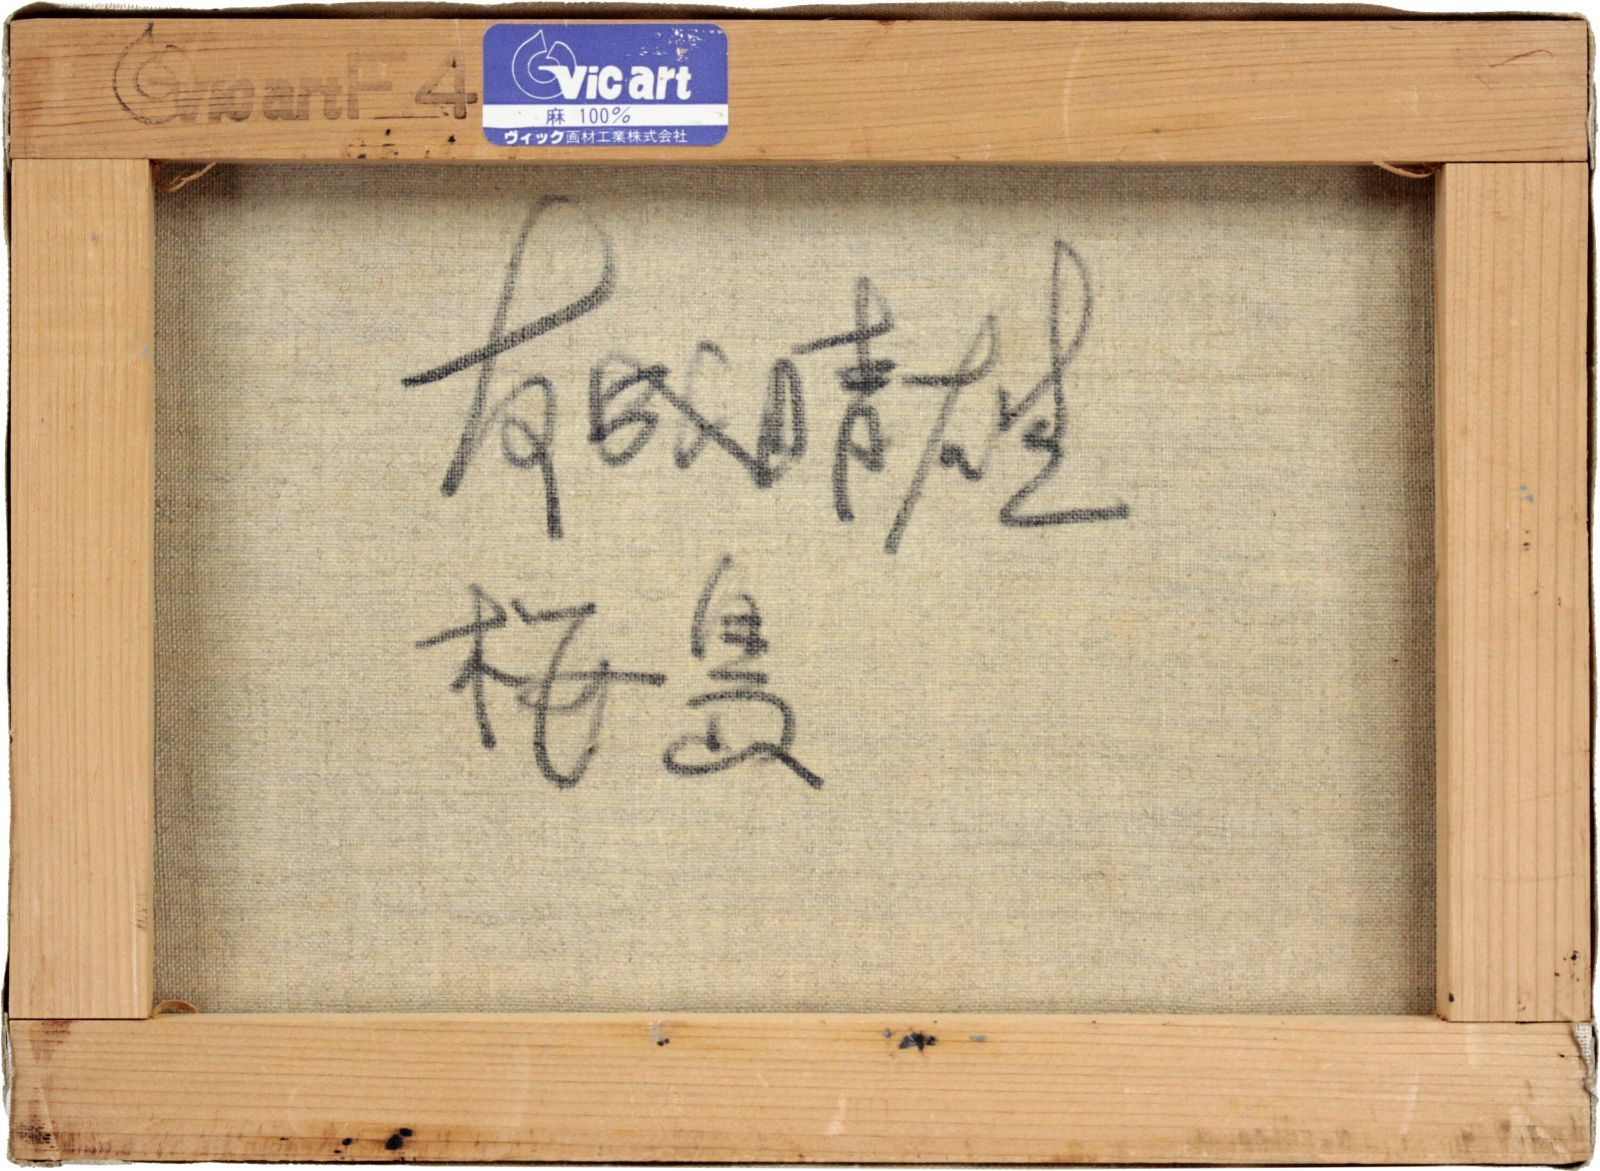 Vic art F 4
Vic art
麻 100%
ヴィック画材工業株式会社
友成晴雄
桜島